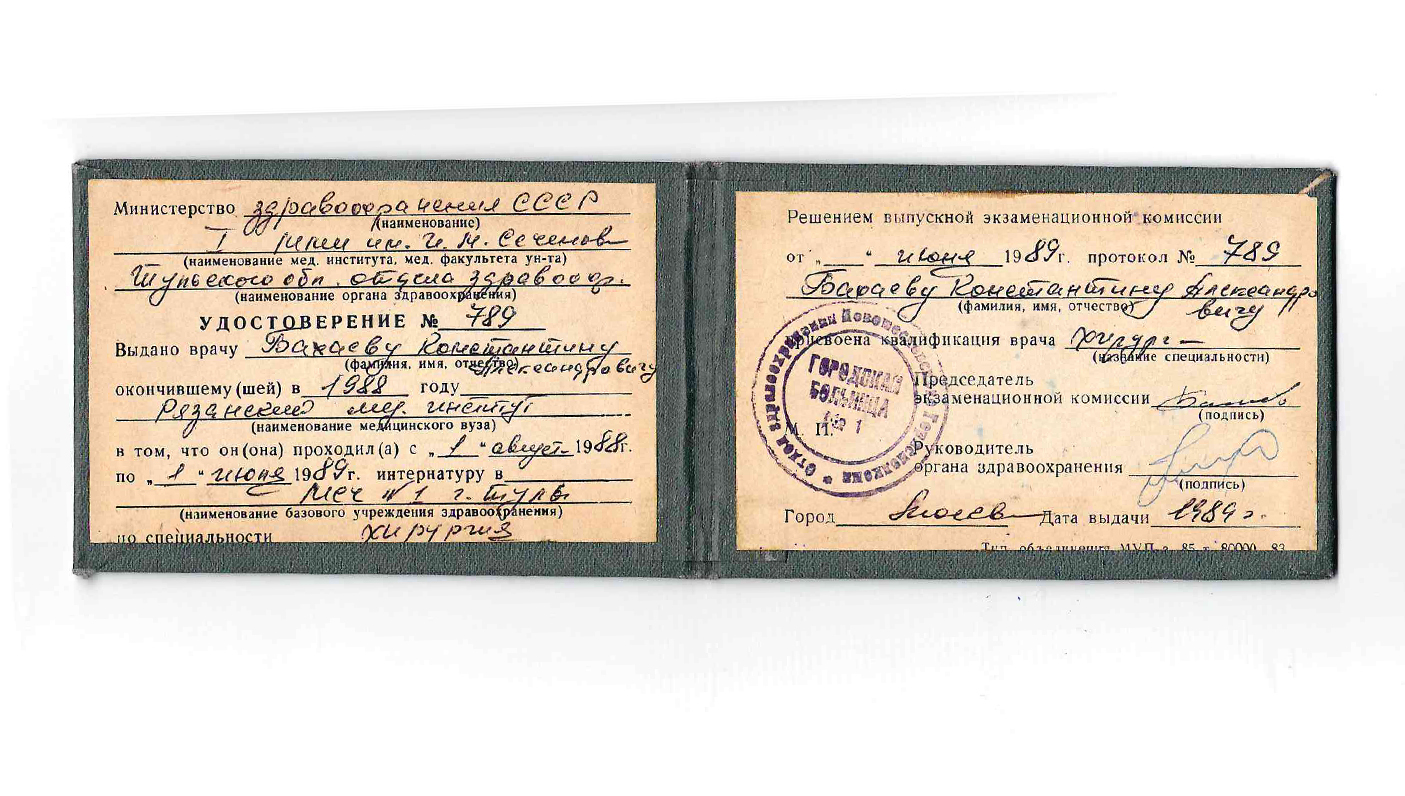 Министерство здравоохранения СССР
(наименование)
I ММИ им. И. М. Сеченова
(наименование мед. института, мед. факультета ун-та)
Тульского обл. отдела здравоохр.
(наименование органа здравоохранения)
УДОСТОВЕРЕНИЕ № 789
Выдано врачу Бахаеву Константину
(фамилия, имя, отчество) Александровичу
окончившему(шей) в 1988 году
Рязанский мед. институт
(наименование медицинского вуза)
в том, что он(она) проходил(а) с „ 1 “ август 1988г.
по „ 1 “ июня 1989г. интернатуру в
МСЧ №1 г. Тулы
(наименование базового учреждения здравоохранения)
по специальности хирургия
Решением выпускной экзаменационной комиссии
от „ “ июня 1989г. протокол № 789
Бахаеву Константину Александро
(фамилия, имя, отчество) вичу
присвоена квалификация врача хирурга
(название специальности)
Председатель
экзаменационной комиссии
(подпись)
М. П.
Руководитель
органа здравоохранения
(подпись)
Город Дата выдачи 1989 г.
Тип. объединения МУП-з. 85-т. 80000 83
ГОРОДСКАЯ
БОЛЬНИЦА
№ 1